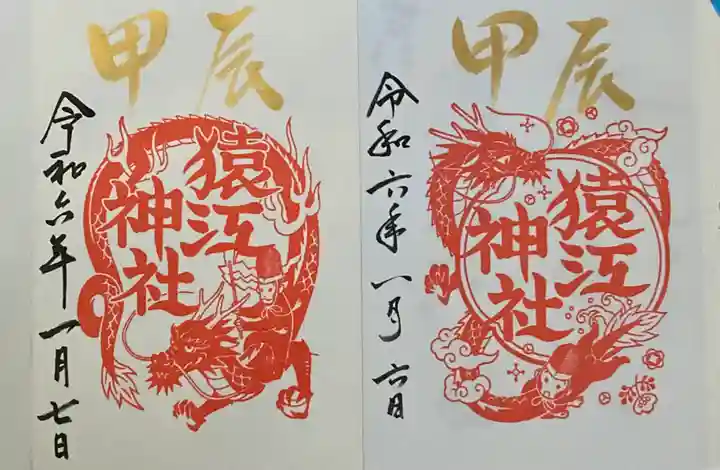 甲辰
猿江
神社
令和六年一月七日
甲辰
猿江
神社
令和六年一月六日